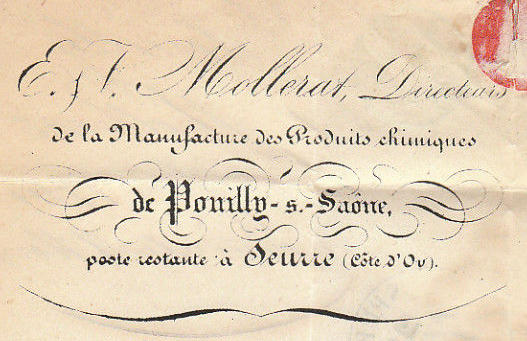 E. & F. Mollerat, Directeurs
de la Manufacture des Produits chimiques
de Pouilly-s.-Saône,
poste restante à Seurre (Côte d'Or).